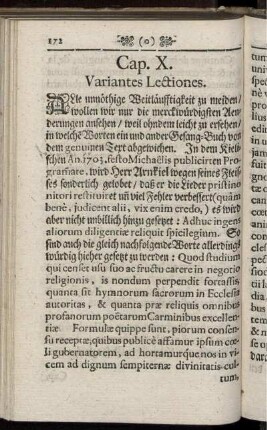 172 (o)
Cap. X.
Variantes Lectiones.
Alle unnöthige Weitläufftigkeit zu meiden/
wollen wir nur die merckwürdigsten Aen-
derungen ansehen / weil ohndem leicht zu ersehen /
in welche Worten ein und ander Gesang-Buch von
dem genuinen Text abgewichen. In dem Kieli-
schen An. 1703. festo Michaëlis publicirten Pro-
grammate, wird Herr Arnkiel wegen seines Fleis-
ses sonderlich gelobet / daß er die Lieder pristino
nitori restituiret uñ viel Fehler verbessert (quàm
benè, judicent alii, vix enim credo,) es wird
aber nicht unbillich hinzu gesetzt: Adhuc ingens
aliorum diligentiæ reliquit spicilegium. So
sind auch die gleich nachfolgende Worte allerdings
würdig hieher gesetzt zu werden: Quod studium
qui censet usu suo ac fructu carere in negotio
religionis, is nondum perpendit fortassis,
quanta sit hymnorum sacrorum in Ecclesia
autoritas, & quanta præ reliquis omnibus
profanorum poëtarum Carminibus excellen-
tiæ Formulæ quippe sunt, piorum consen-
su receptæ, quibus publicè affamur ipsum cœ-
li gubernatorem, ad hortamur quæ nos in vi-
cem ad dignum sempiternæ divinitatis cul-
tum,